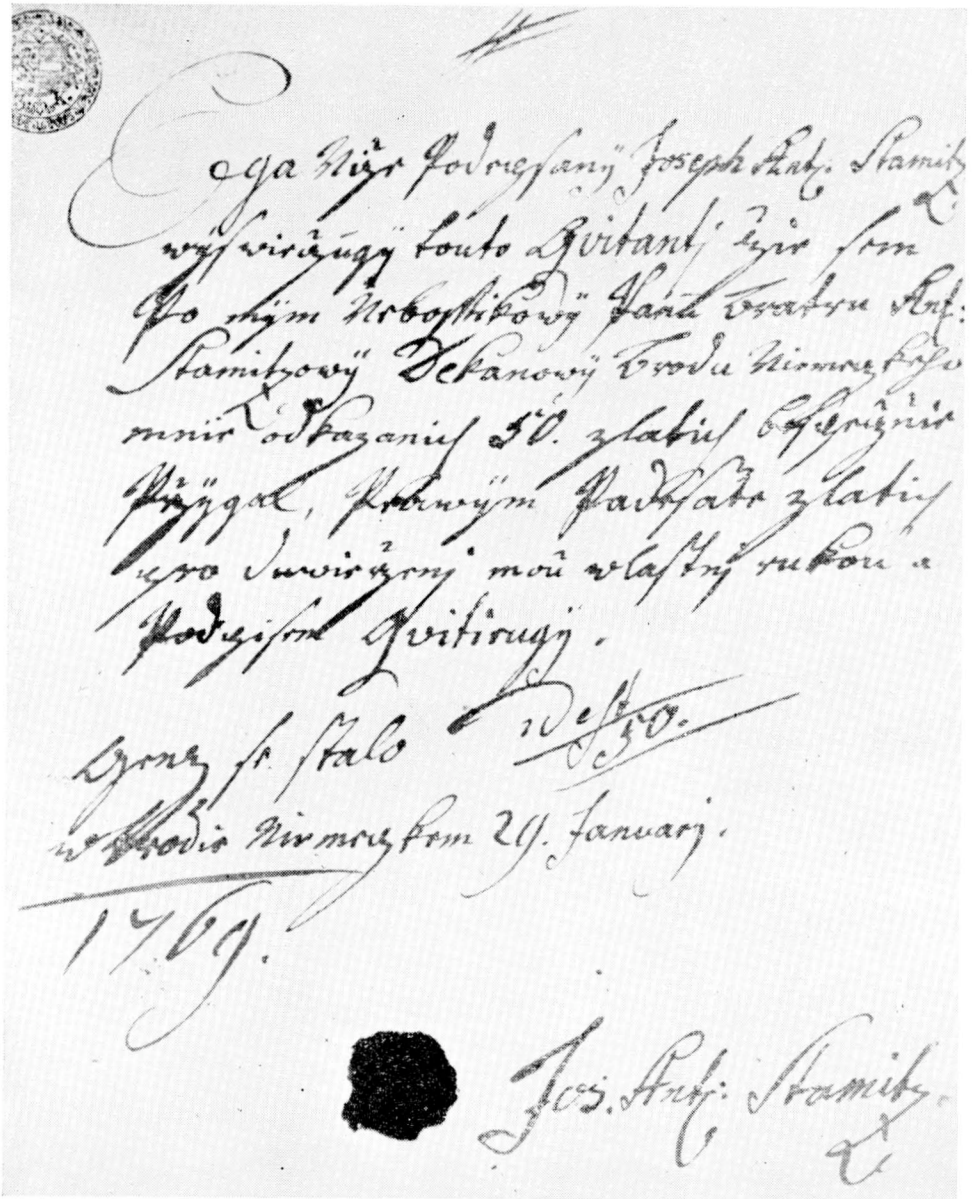 Cega Níže Podepsaný Joseph Ant: Stamitz
wyswiedczugy touto Qvitantj žie sem
Po mým Neboſstikowÿ Panu bratru Ant:
Stamitzowÿ Dekanowÿ brodu Niemeczkeho
mnie odkazanich 50. zlatich
Přÿgal, Padesáte zlatich
mou wlastnj rukou a
Podpisem Qvitirugÿ.
se stalo 50.
w Brodie Niemeczkem 29. Januarj.
1769.
Jos. Ant: Stamitz.